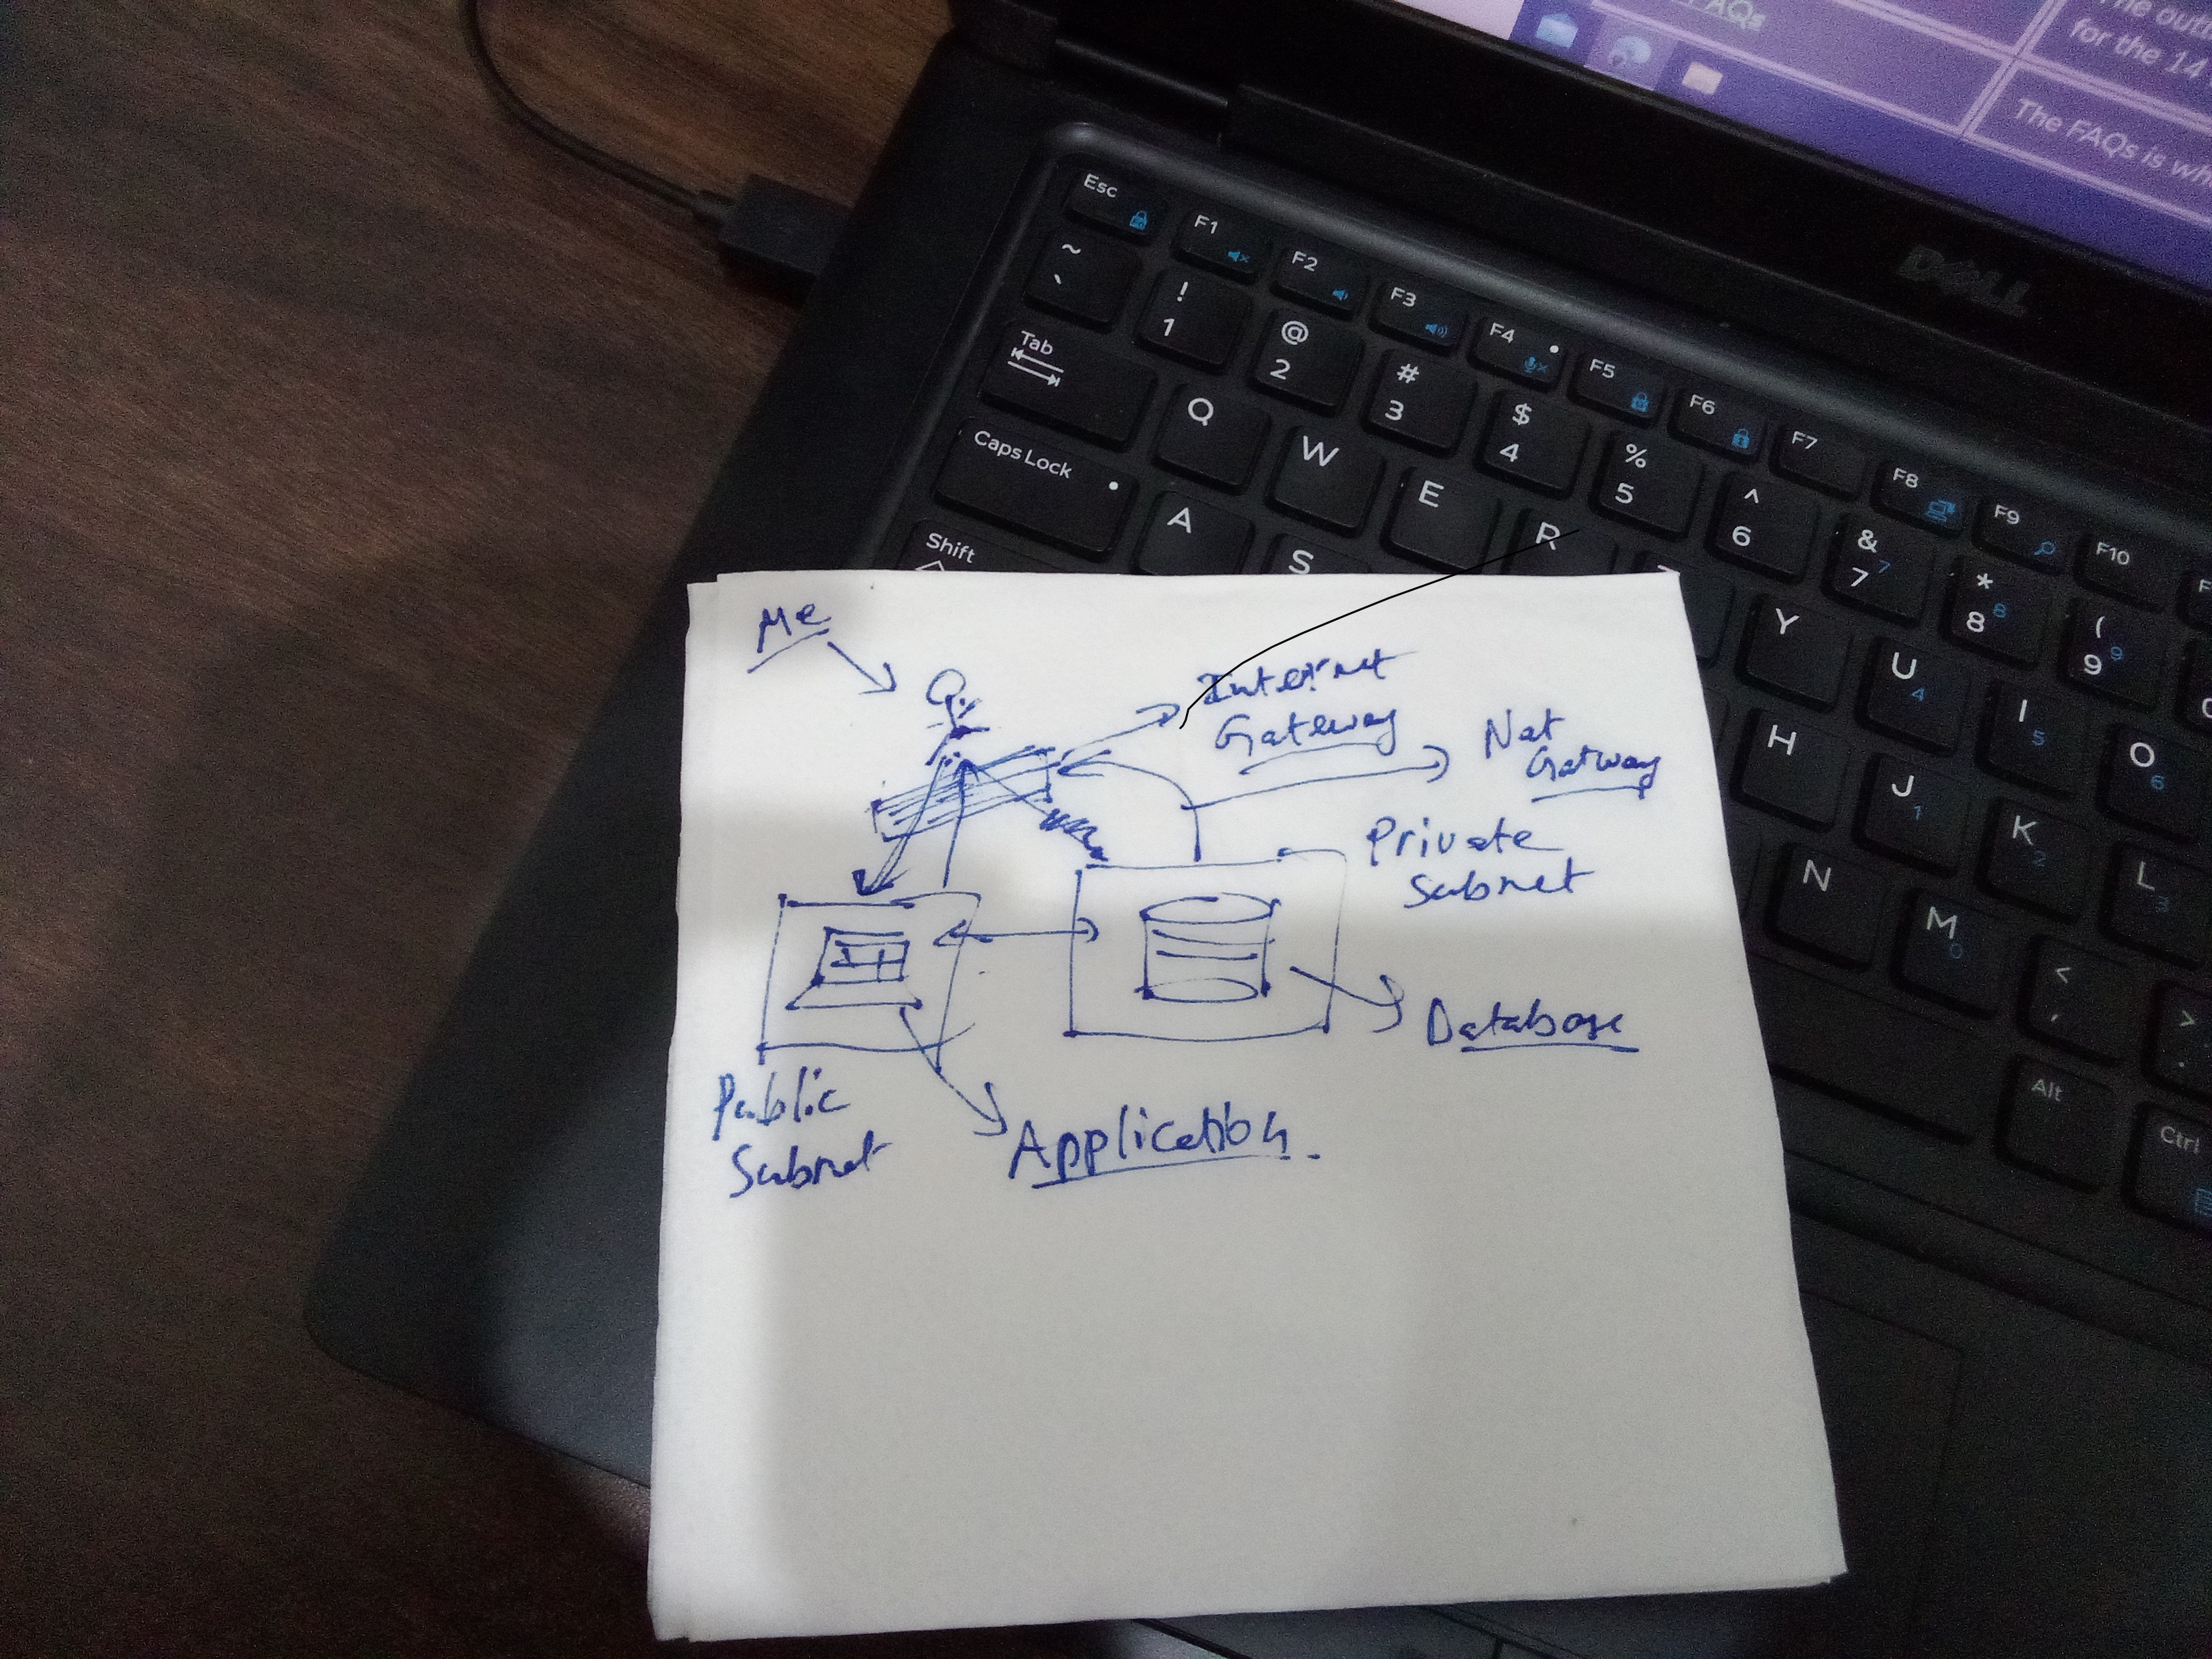 FAQs
The out
for the 14
The FAQs is wh
DELL
Esc
F1
F2
F3
F4
F5
F6
F7
F8
F9
F10
F
~
`
!
1
@
2
#
3
$
4
%
5
^
6
&
7
7
*
8
8
(
9
9
Tab
Q
W
E
R
Y
U
4
I
5
O
6
Caps Lock
A
S
H
J
1
K
2
L
3
Shift
N
M
0
<
,
>
.
Alt
Ctrl
Me
Internet
Gateway
Nat
Gatway
Private
Subnet
Database
Public
Subnet
Application.